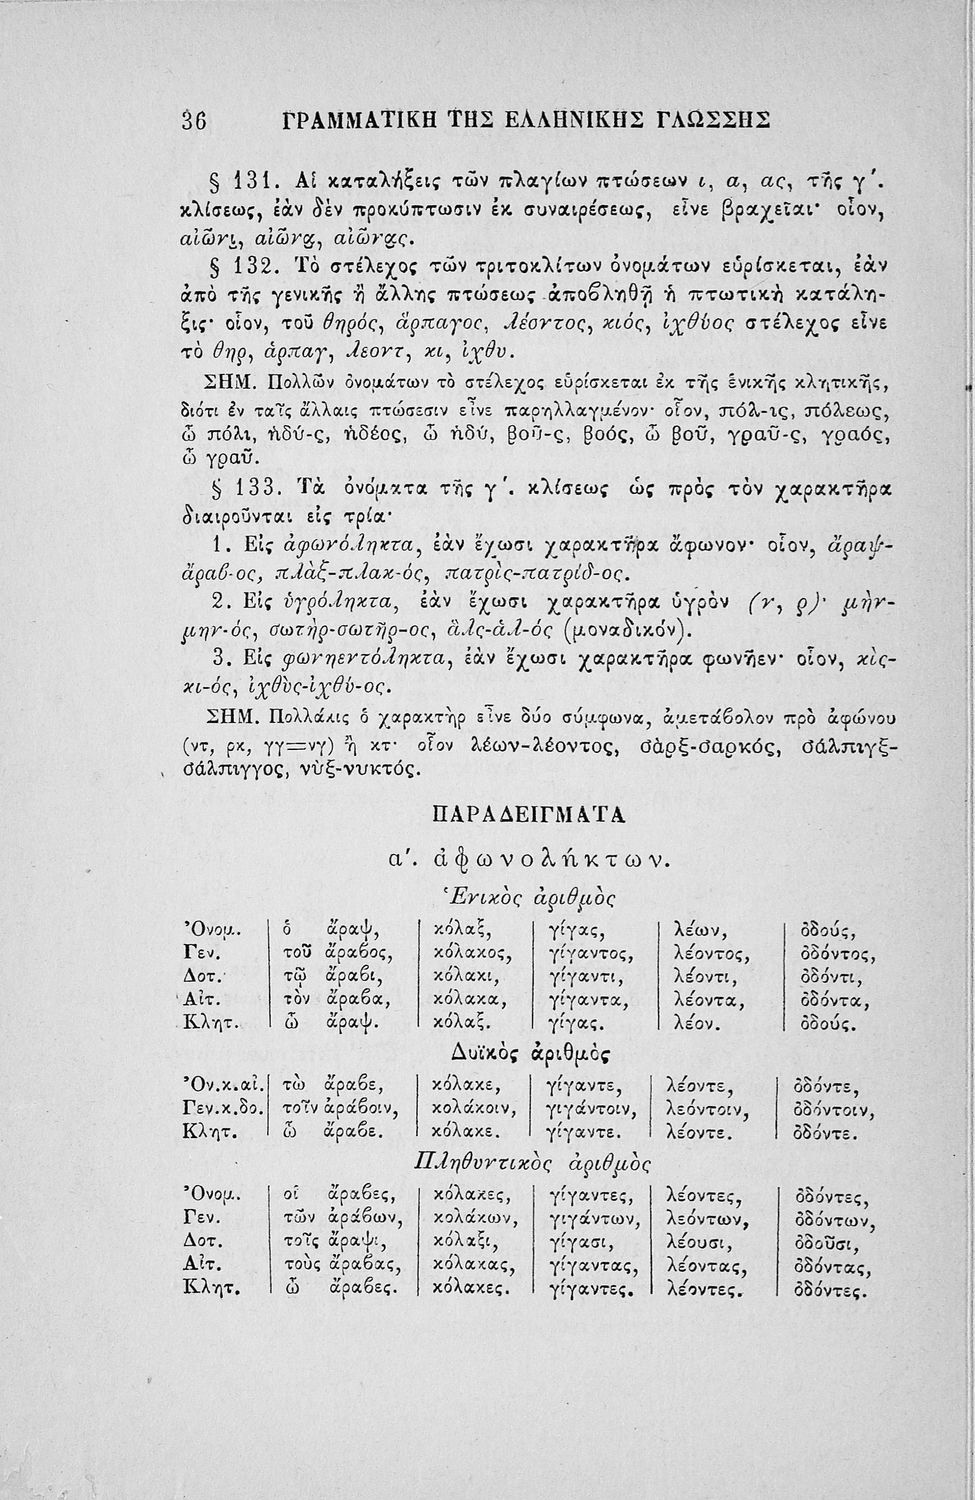 36 ΓΡΑΜΜΑΤΙΚΗ ΤΗΣ ΕΛΛΗΝΙΚΗΣ ΓΛΩΣΣΗΣ
§ 131. Αἱ καταλήξεις τῶν πλαγίων πτώσεων ι, α, ας, τῆς γ΄.
κλίσεως, ἐὰν δὲν προκύπτωσιν ἐκ συναιρέσεως, εἶνε βραχεῖαι· οἷον,
αἰῶνῐ, αἰῶνᾰ, αἰῶνᾰς.
§ 132. Τὸ στέλεχος τῶν τριτοκλίτων ὀνομάτων εὑρίσκεται, ἐὰν
ἀπὸ τῆς γενικῆς ἢ ἄλλης πτώσεως ἀποβληθῇ ἡ πτωτικὴ κατάλη-
ξις· οἷον, τοῦ θηρός, ἅρπαγος, λέοντος, κιός, ἰχθύος στέλεχος εἶνε
τὸ θηρ, ἁρπαγ, λεοντ, κι, ἰχθυ.
ΣΗΜ. Πολλῶν ὀνομάτων τὸ στέλεχος εὑρίσκεται ἐκ τῆς ἑνικῆς κλητικῆς,
διότι ἐν ταῖς ἄλλαις πτώσεσιν εἶνε παρηλλαγμένον· οἷον, πόλ-ις, πόλεως,
ὦ πόλι, ἡδύ-ς, ἡδέος, ὦ ἡδύ, βοῦ-ς, βοός, ὦ βοῦ, γραῦ-ς, γραός,
ὦ γραῦ.
§ 133. Τὰ ὀνόματα τῆς γ΄. κλίσεως ὡς πρὸς τὸν χαρακτῆρα
διαιροῦνται εἰς τρία·
1. Εἰς ἀφωνόληκτα, ἐὰν ἔχωσι χαρακτῆρα ἄφωνον· οἷον, ἄραψ-
ἄραβ-ος, πλὰξ-πλακ-ός, πατρὶς-πατρίδ-ος.
2. Εἰς ὑγρόληκτα, ἐὰν ἔχωσι χαρακτῆρα ὑγρὸν (ν, ρ)· μὴν-
μην-ός, σωτὴρ-σωτῆρ-ος, ἅλς-ἁλ-ός (μοναδικόν).
3. Εἰς φωνηεντόληκτα, ἐὰν ἔχωσι χαρακτῆρα φωνῆεν· οἷον, κὶς-
κι-ός, ἰχθὺς-ἰχθύ-ος.
ΣΗΜ. Πολλάκις ὁ χαρακτὴρ εἶνε δύο σύμφωνα, ἀμετάβολον πρὸ ἀφώνου
(ντ, ρκ, γγ=νγ) ἢ κτ· οἷον λέων-λέοντος, σὰρξ-σαρκός, σάλπιγξ-
σάλπιγγος, νὺξ-νυκτός.
ΠΑΡΑΔΕΙΓΜΑΤΑ
α΄. ἀφωνολήκτων.
Ἑνικὸς ἀριθμὸς
Ὀνομ. ὁ ἄραψ, κόλαξ, γίγας, λέων, ὀδούς,
Γεν. τοῦ ἄραβος, κόλακος, γίγαντος, λέοντος, ὀδόντος,
Δοτ. τῷ ἄραβι, κόλακι, γίγαντι, λέοντι, ὀδόντι,
Αἰτ. τὸν ἄραβα, κόλακα, γίγαντα, λέοντα, ὀδόντα,
Κλητ. ὦ ἄραψ. κόλαξ. γίγας. λέον. ὀδούς.
Δυϊκὸς ἀριθμὸς
Ὀν.κ.αἰ. τὼ ἄραβε, κόλακε, γίγαντε, λέοντε, ὀδόντε,
Γεν.κ.δο. τοῖν ἀράβοιν, κολάκοιν, γιγάντοιν, λεόντοιν, ὀδόντοιν,
Κλητ. ὦ ἄραβε. κόλακε. γίγαντε. λέοντε. ὀδόντε.
Πληθυντικὸς ἀριθμὸς
Ὀνομ. οἱ ἄραβες, κόλακες, γίγαντες, λέοντες, ὀδόντες,
Γεν. τῶν ἀράβων, κολάκων, γιγάντων, λεόντων, ὀδόντων,
Δοτ. τοῖς ἄραψι, κόλαξι, γίγασι, λέουσι, ὀδοῦσι,
Αἰτ. τοὺς ἄραβας, κόλακας, γίγαντας, λέοντας, ὀδόντας,
Κλητ. ὦ ἄραβες. κόλακες. γίγαντες. λέοντες. ὀδόντες.